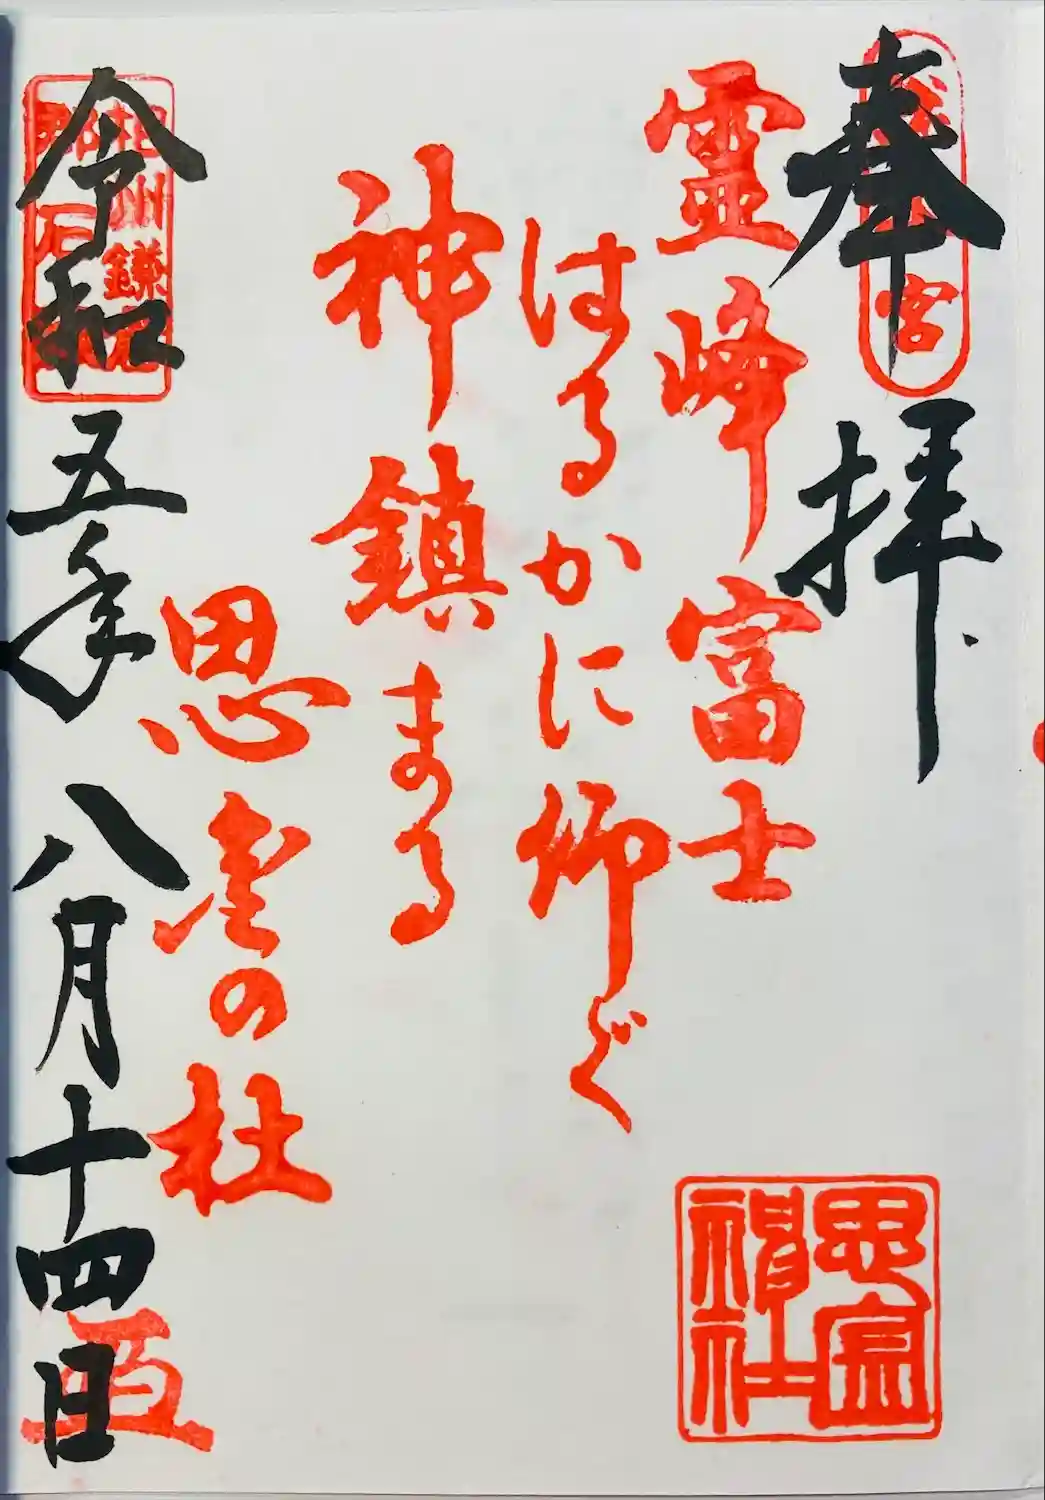 奉拝
霊峰富士
はるかに仰ぐ
神鎮まる
思金の杜
令和五年八月十四日
宮
相州鎌
思金
神社